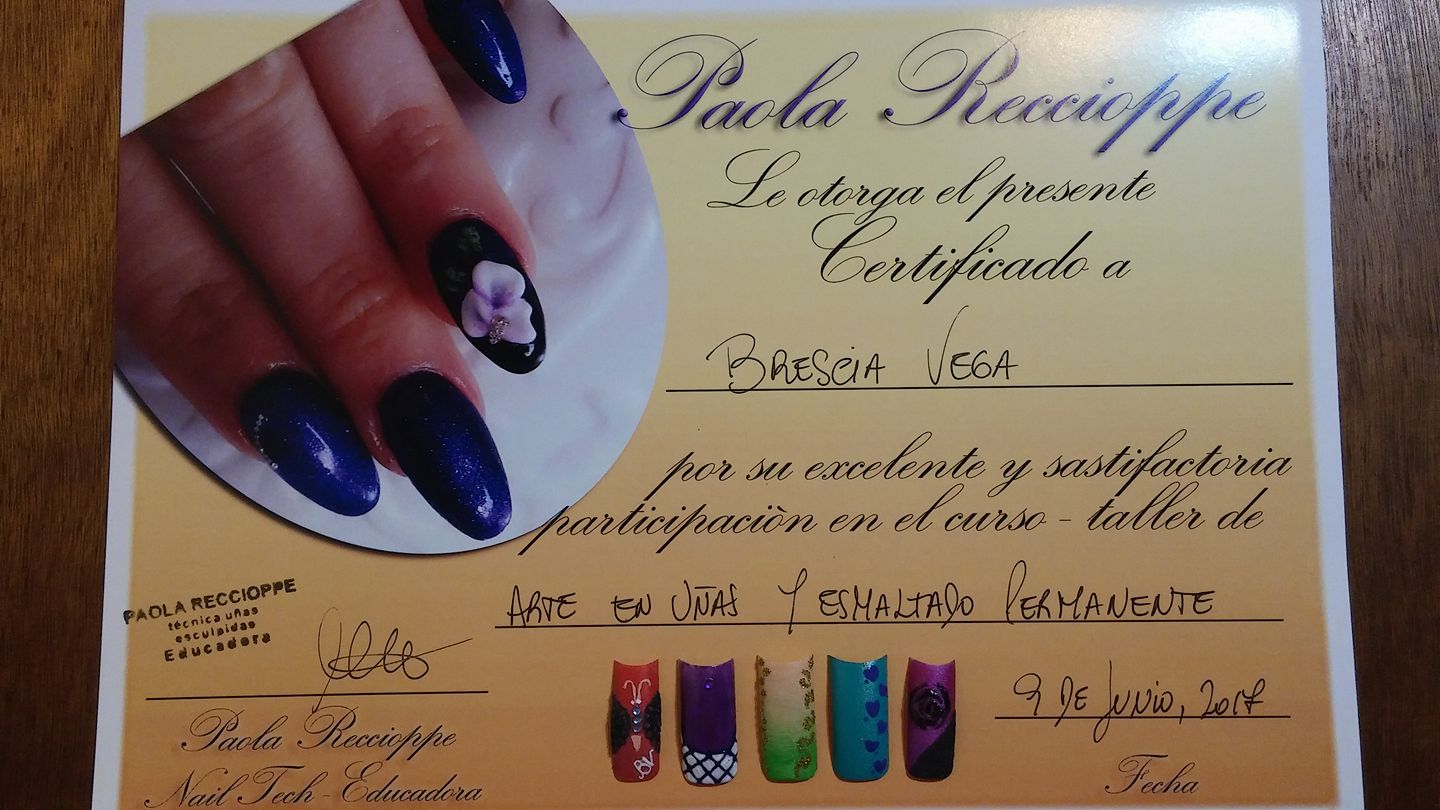 Paola Reccioppe
Le otorga el presente
Certificado a
BRESCIA VEGA
por su excelente y sastifactoria
participaciòn en el curso - taller de
ARTE EN UÑAS Y ESMALTADO PERMANENTE
PAOLA RECCIOPPE
técnica uñas
esculpidas
Educadora
9 DE JUNIO, 2017
Paola Reccioppe
Nail Tech - Educadora
Fecha